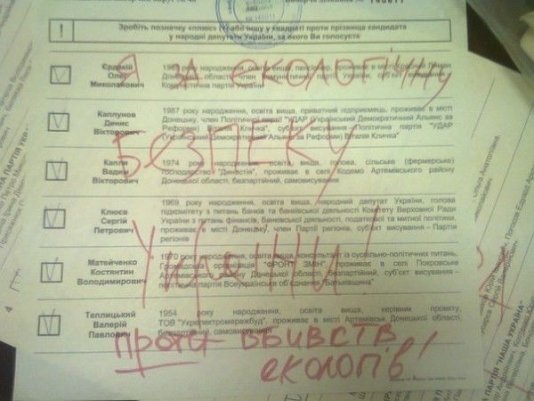 Зробіть позначку «плюс» (+) або іншу у квадраті проти прізвища кандидата
у народні депутати України, за якого Ви голосуєте
!
Я ЗА ЕКОЛОГІЧНУ
БЕЗПЕКУ
України!
ПРОТИ ВБИВСТВ
екологів!
Олег
Миколайович
Комуністична партія України
Каплунов
Денис
Вікторович
1987 року народження, освіта вища, приватний підприємець, проживає в місті
Донецьку, член Політичної партії "УДАР (Український Демократичний Альянс за
Реформи) Віталія Кличка", суб'єкт висування - Політична партія "УДАР
(Український Демократичний Альянс за Реформи) Віталія Кличка"
Вадим
Вікторович
1974 року народження, освіта вища, голова, сільське (фермерське)
господарство "Династія", проживає в селі Кодемо Артемівського району
Донецької області, безпартійний, самовисування
Клюєв
Сергій
Петрович
1969 року народження, освіта вища, народний депутат України, голова
підкомітету з питань банків та банківської діяльності Комітету Верховної Ради
України з питань фінансів, банківської діяльності, податкової та митної політики,
проживає в місті Донецьку, член Партії регіонів, суб'єкт висування - Партія
регіонів
Матвійченко
Костянтин
Володимирович
1970 року народження, освіта вища, консультант із суспільно-політичних питань,
Громадська організація "ФРОНТ ЗМІН", проживає в селі Покровське
Артемівського району Донецької області, безпартійний, суб'єкт висування -
політична партія Всеукраїнське об'єднання "Батьківщина"
Теплицький
Валерій
Павлович
1954 року народження, освіта вища, керівник проекту,
ТОВ "Укрелектромережбуд", проживає в місті Артемівськ Донецької області,
безпартійний, самовисування